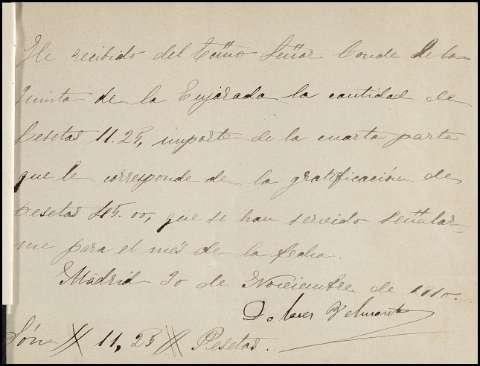 He recibido del Exmo Señor Conde de la
Quinta de la Enjarada la cantidad de
Pesetas 11.25, importe de la cuarta parte
que le corresponde de la gratificación de
pesetas 45.00, que se han servido señalar-
me para el mes de la fecha.
Madrid 30 de Noviembre de 1910.
Dolores
Són # 11,25 # Pesetas.